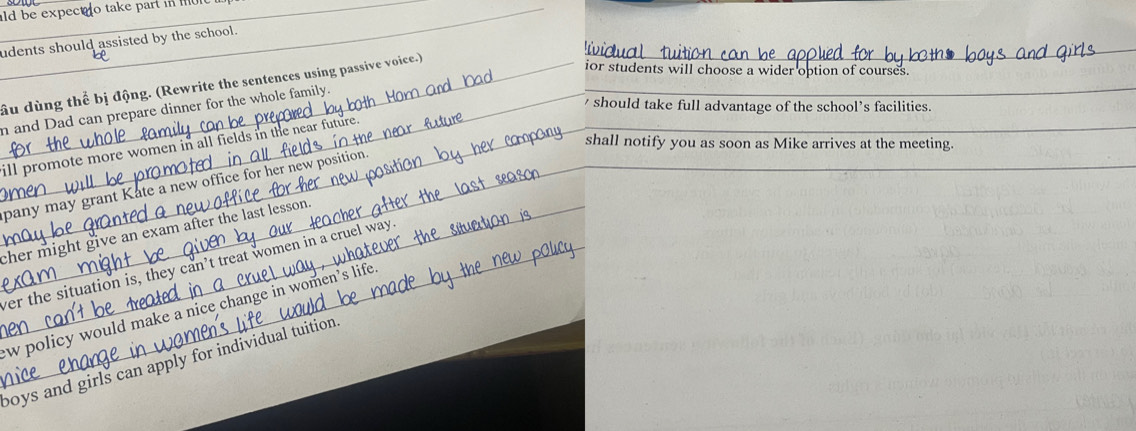 be expected to take part in more
students should assisted by the school.
be
câu dùng thể bị động. (Rewrite the sentences using passive voice.)
and Dad can prepare dinner for the whole family.
for the whole family can be prepared by both Mom and Dad
will promote more women in all fields in the near future.
women will be promoted in all fields in the near future
may grant Kate a new office for her new position.
may be granted a new office for her new position by her company
might give an exam after the last lesson.
exam might be given by our teacher after the last season
the situation is, they can't treat women in a cruel way.
can't be treated in a cruel way, whatever the situation is
policy would make a nice change in women's life.
nice change in women's life would be made by the new policy
boys and girls can apply for individual tuition.
individual tuition can be applied for by both boys and girls
students will choose a wider option of courses.
should take full advantage of the school's facilities.
shall notify you as soon as Mike arrives at the meeting.